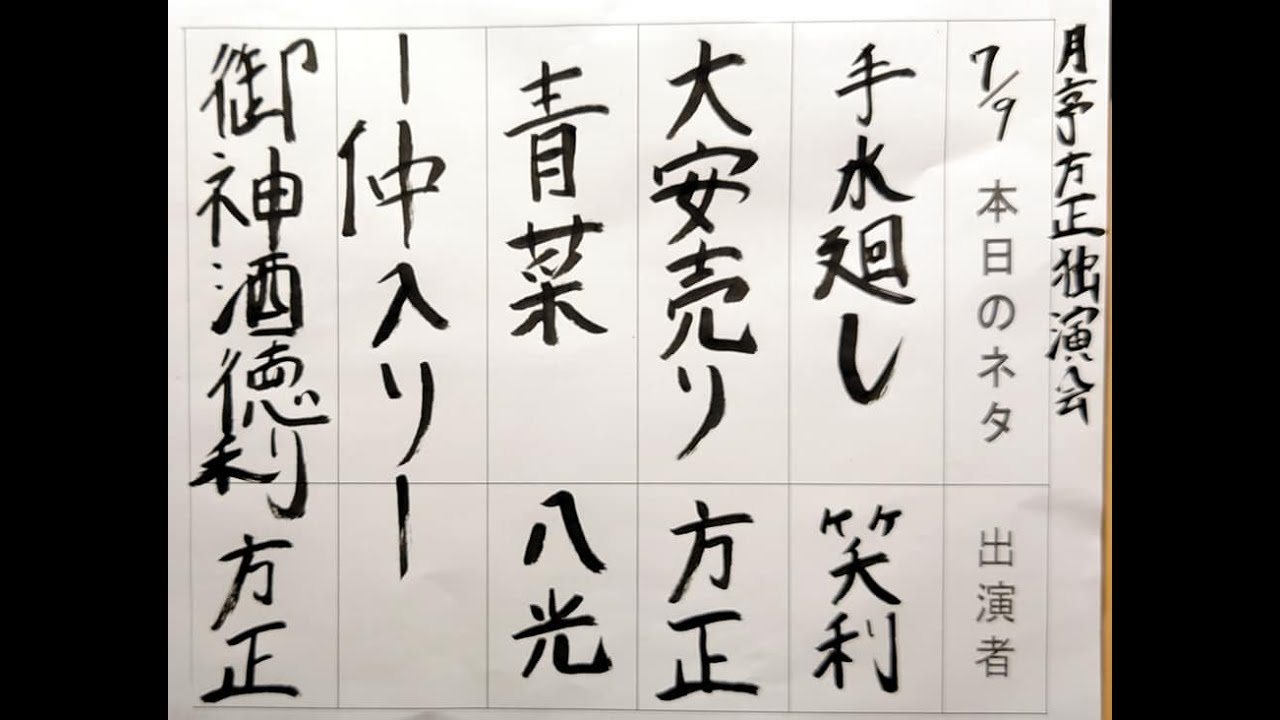 月亭方正独演会
7/9 本日のネタ 出演者
手水廻し 笑利
大安売り 方正
青菜 八光
ー仲入りー
御神酒徳利 方正